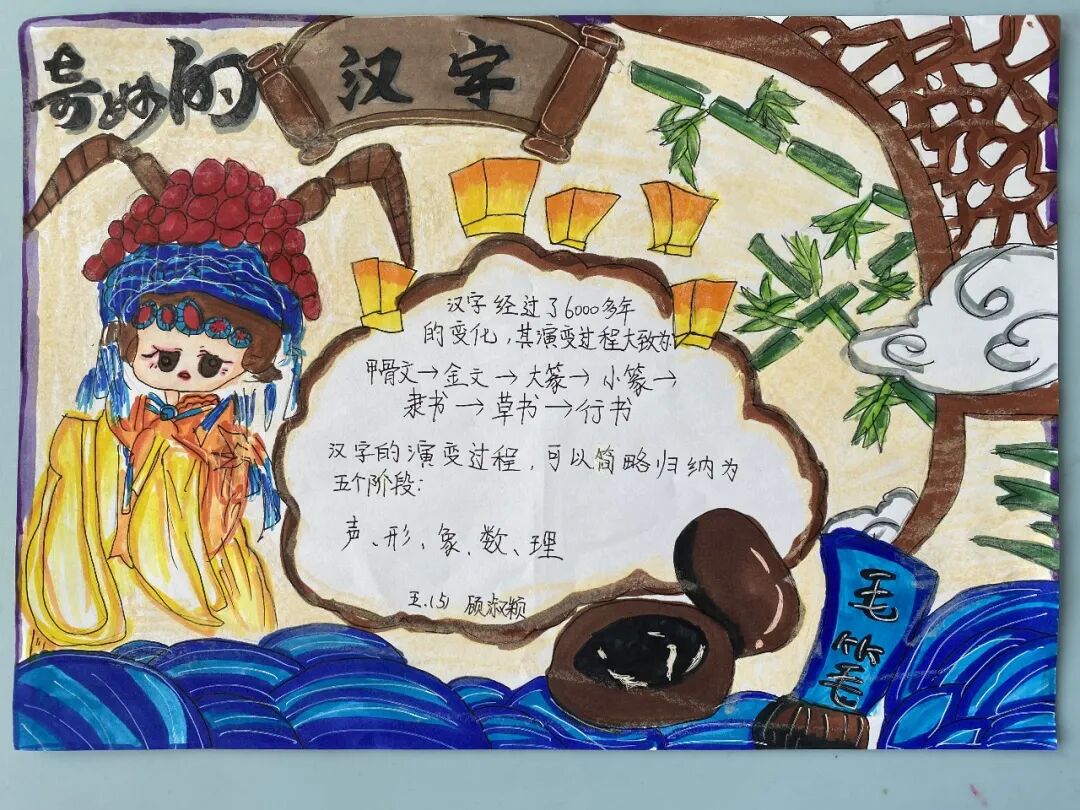 奇妙的汉字
汉字经过了6000多年
的变化，其演变过程大致为
甲骨文→金文→大篆→小篆→
隶书→草书→行书
汉字的演变过程，可以简略归纳为
五个阶段：
声、形、象、数、理
五.(5) 顾淑颖
毛笔